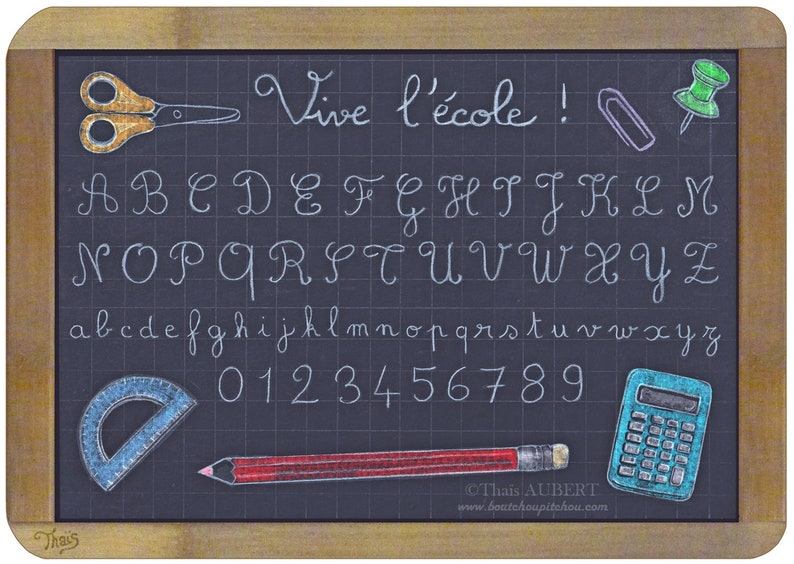 Vive l'école !
A B C D E F G H I J K L M
N O P Q R S T U V W X Y Z
a b c d e f g h i j k l m n o p q r s t u v w x y z
0 1 2 3 4 5 6 7 8 9
©Thaïs AUBERT
www.boutchoupitchou.com
Thaïs